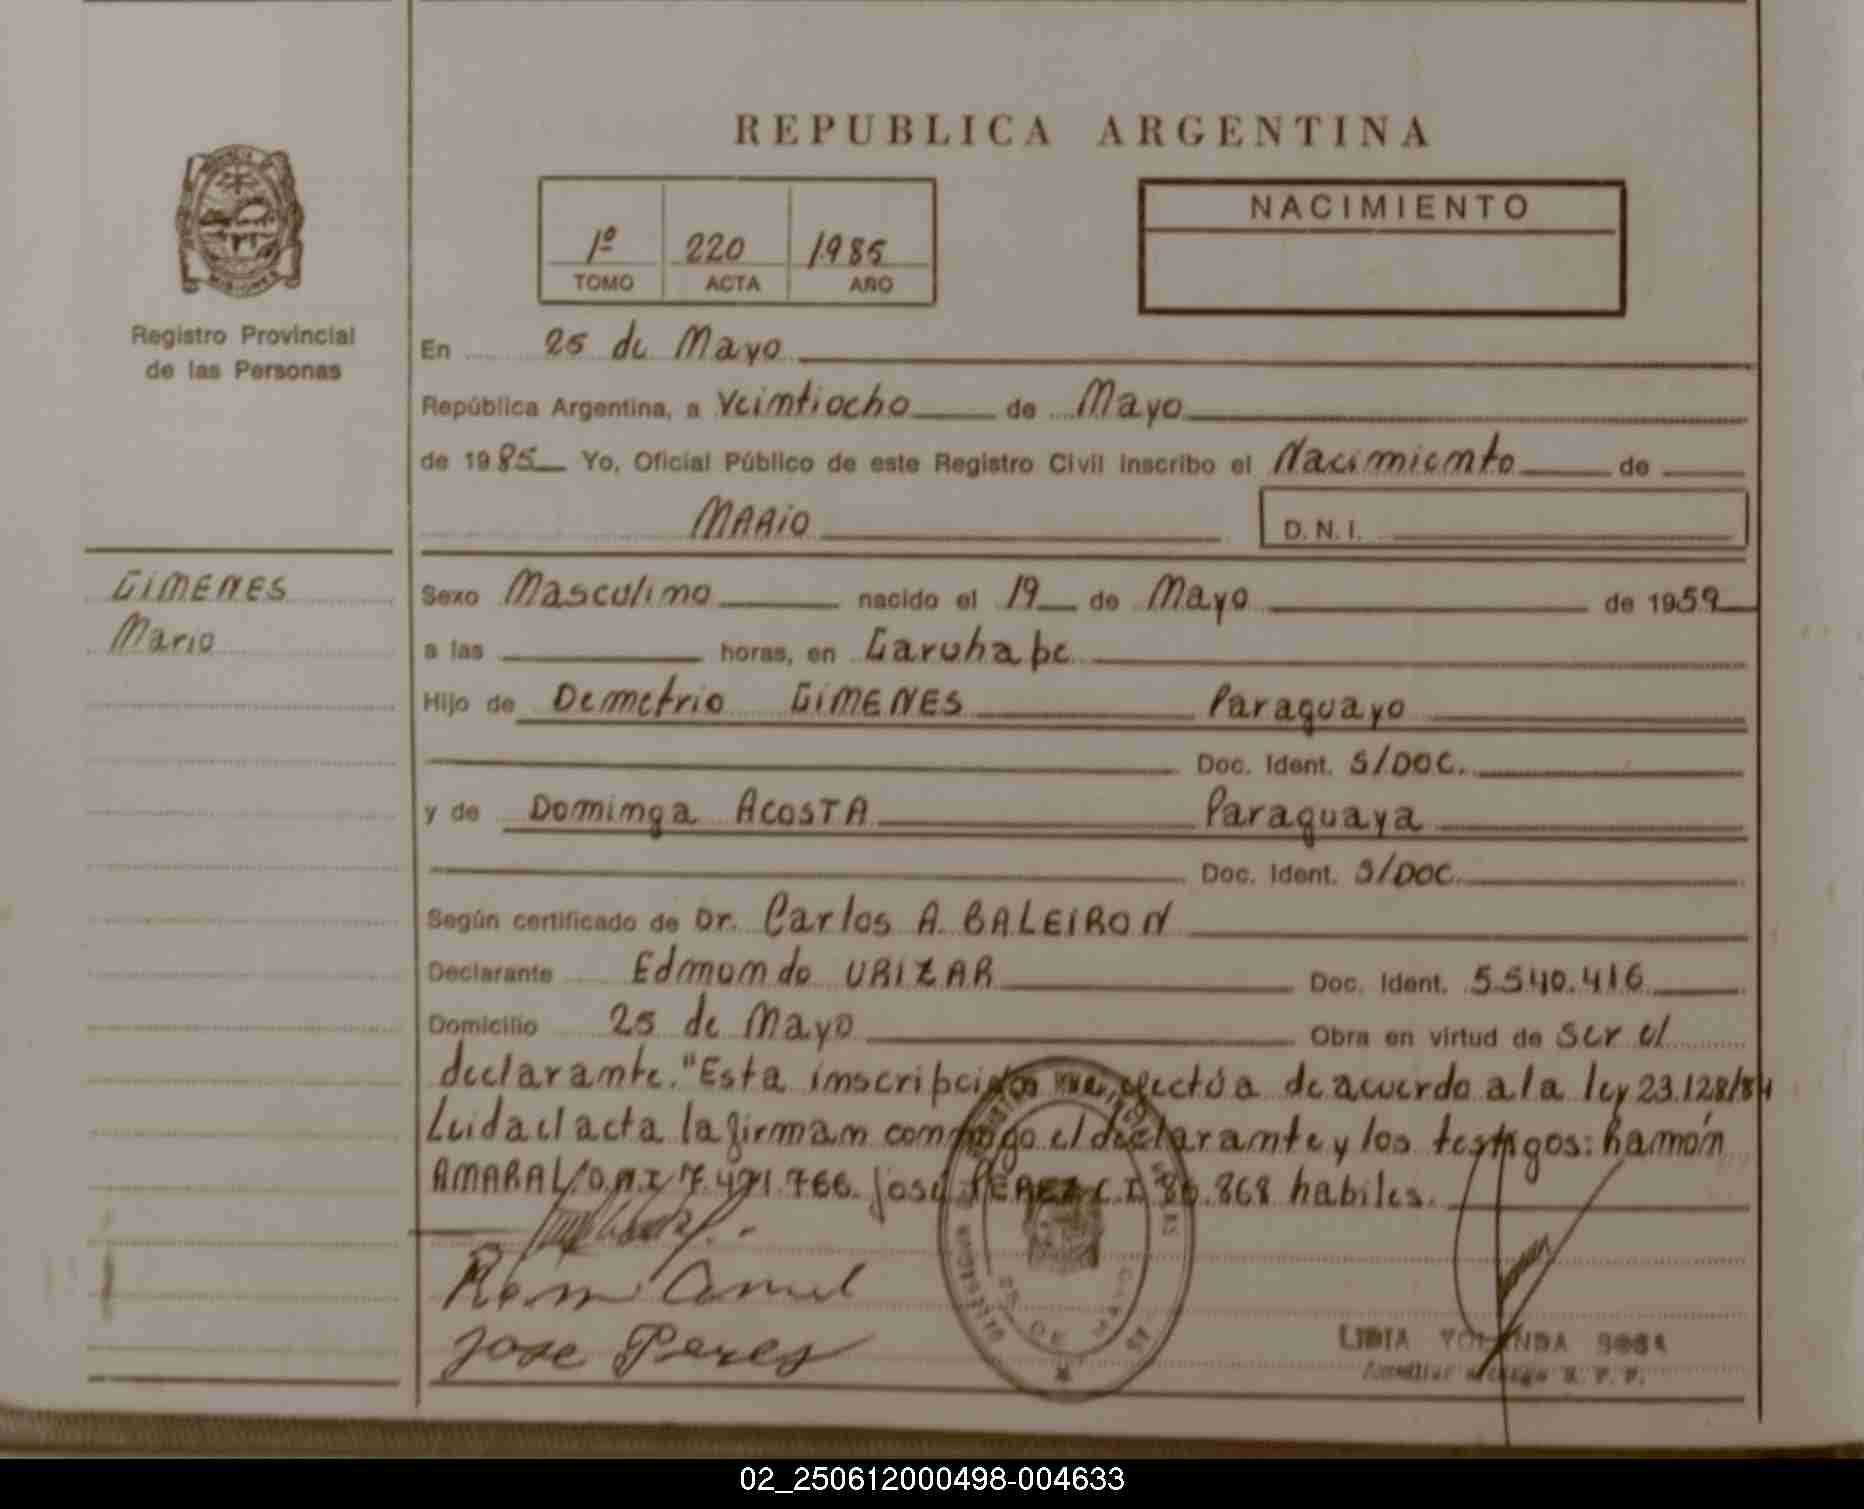 REPUBLICA ARGENTINA
1º 220 1985
TOMO ACTA AÑO
NACIMIENTO
MISIONES
Registro Provincial
de las Personas
GIMENES
Mario
En 25 de Mayo
República Argentina, a Veintiocho de Mayo
de 1985 Yo, Oficial Público de este Registro Civil inscribo el Nacimiento de
MARIO D. N. I.
Sexo Masculino nacido el 19 de Mayo de 1959
a las horas, en Garuhape
Hijo de Demetrio GIMENES Paraguayo
Doc. Ident. S/DOC.
y de Dominga ACOSTA Paraguaya
Doc. Ident. S/DOC.
Según certificado de Dr. Carlos A. BALEIRON
Declarante Edmundo URIZAR Doc. Ident. 5.540.416
Domicilio 25 de Mayo Obra en virtud de ser el
declarante. "Esta inscripción se efectúa de acuerdo a la ley 23.128/84
Leida el acta la firman conmigo el declarante y los testigos: Ramón
AMARAL D.N.I 7.471.766. José PEREZ C.I. 86.868 habiles.
Jose Perez
25 DE MAYO
LIDIA YOLANDA SOSA
02_250612000498-004633